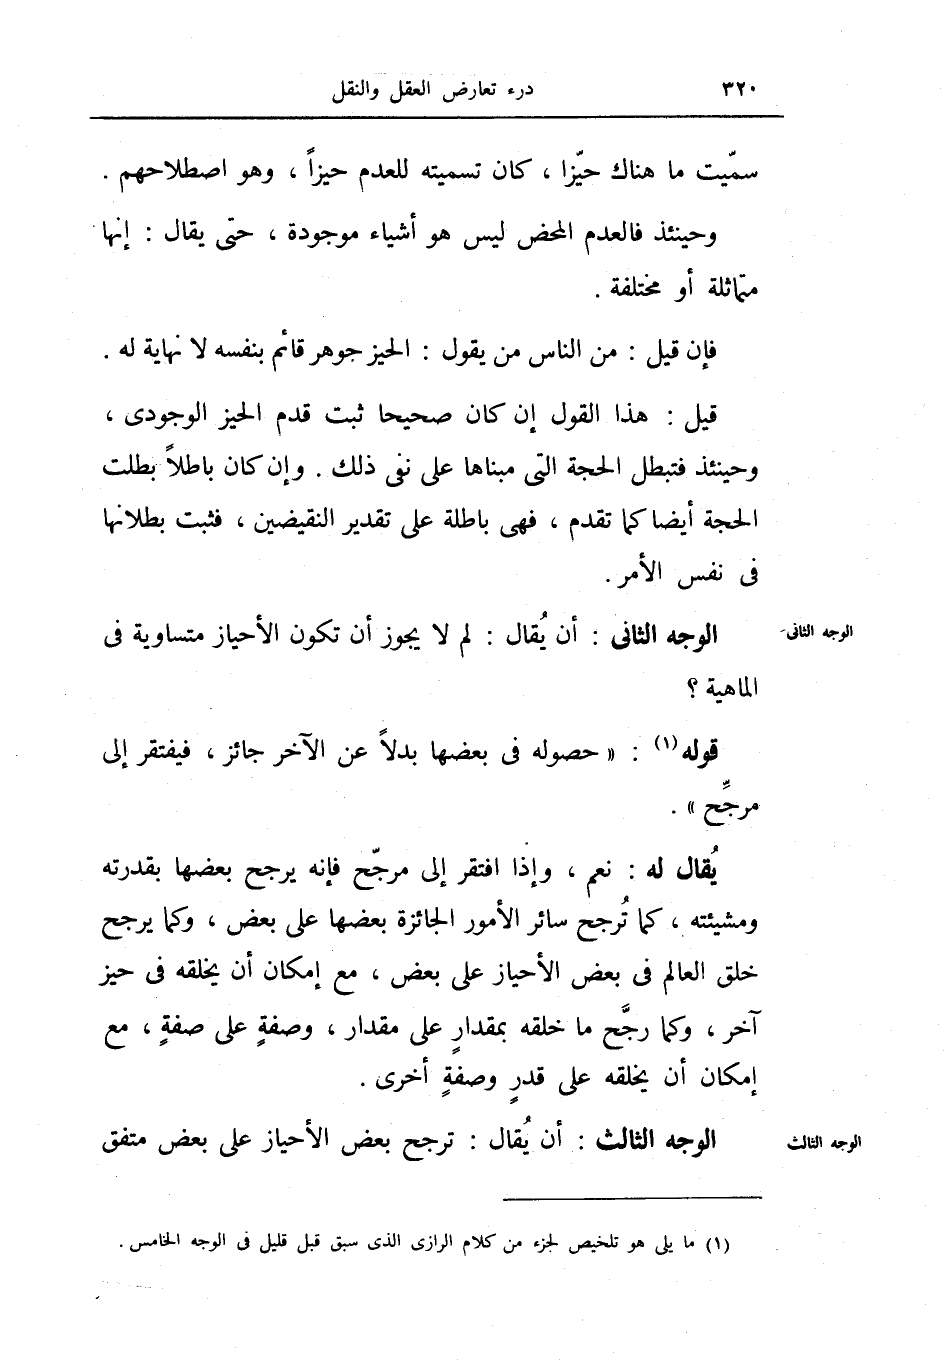 ٣٢٠ درء تعارض العقل والنقل
سمّيت ما هناك حيّزا ، كان تسميته للعدم حيزاً ، وهو اصطلاحهم .
وحينئذ فالعدم المحض ليس هو أشياء موجودة ، حتى يقال : إنها
متماثلة أو مختلفة .
فإن قيل : من الناس من يقول : الحيز جوهر قائم بنفسه لا نهاية له .
قيل : هذا القول إن كان صحيحا ثبت قدم الحيز الوجودى ،
وحينئذ فتبطل الحجة التى مبناها على نفى ذلك . وإن كان باطلاً بطلت
الحجة أيضا كما تقدم ، فهى باطلة على تقدير النقيضين ، فثبت بطلانها
فى نفس الأمر .
الوجه الثانى
الوجه الثانى : أن يُقال : لم لا يجوز أن تكون الأحياز متساوية فى
الماهية ؟
قوله(١) : « حصوله فى بعضها بدلاً عن الآخر جائز ، فيفتقر إلى
مرجِّح » .
يُقال له : نعم ، وإذا افتقر إلى مرجّح فإنه يرجح بعضها بقدرته
ومشيئته ، كما تُرجح سائر الأمور الجائزة بعضها على بعض ، وكما يرجح
خلق العالم فى بعض الأحياز على بعض ، مع إمكان أن يخلقه فى حيز
آخر ، وكما رجَّح ما خلقه بمقدارٍ على مقدار ، وصفةٍ على صفةٍ ، مع
إمكان أن يخلقه على قدرٍ وصفةٍ أخرى .
الوجه الثالث
الوجه الثالث : أن يُقال : ترجح بعض الأحياز على بعض متفق
(١) ما يلى هو تلخيص لجزء من كلام الرازى الذى سبق قبل قليل فى الوجه الخامس .